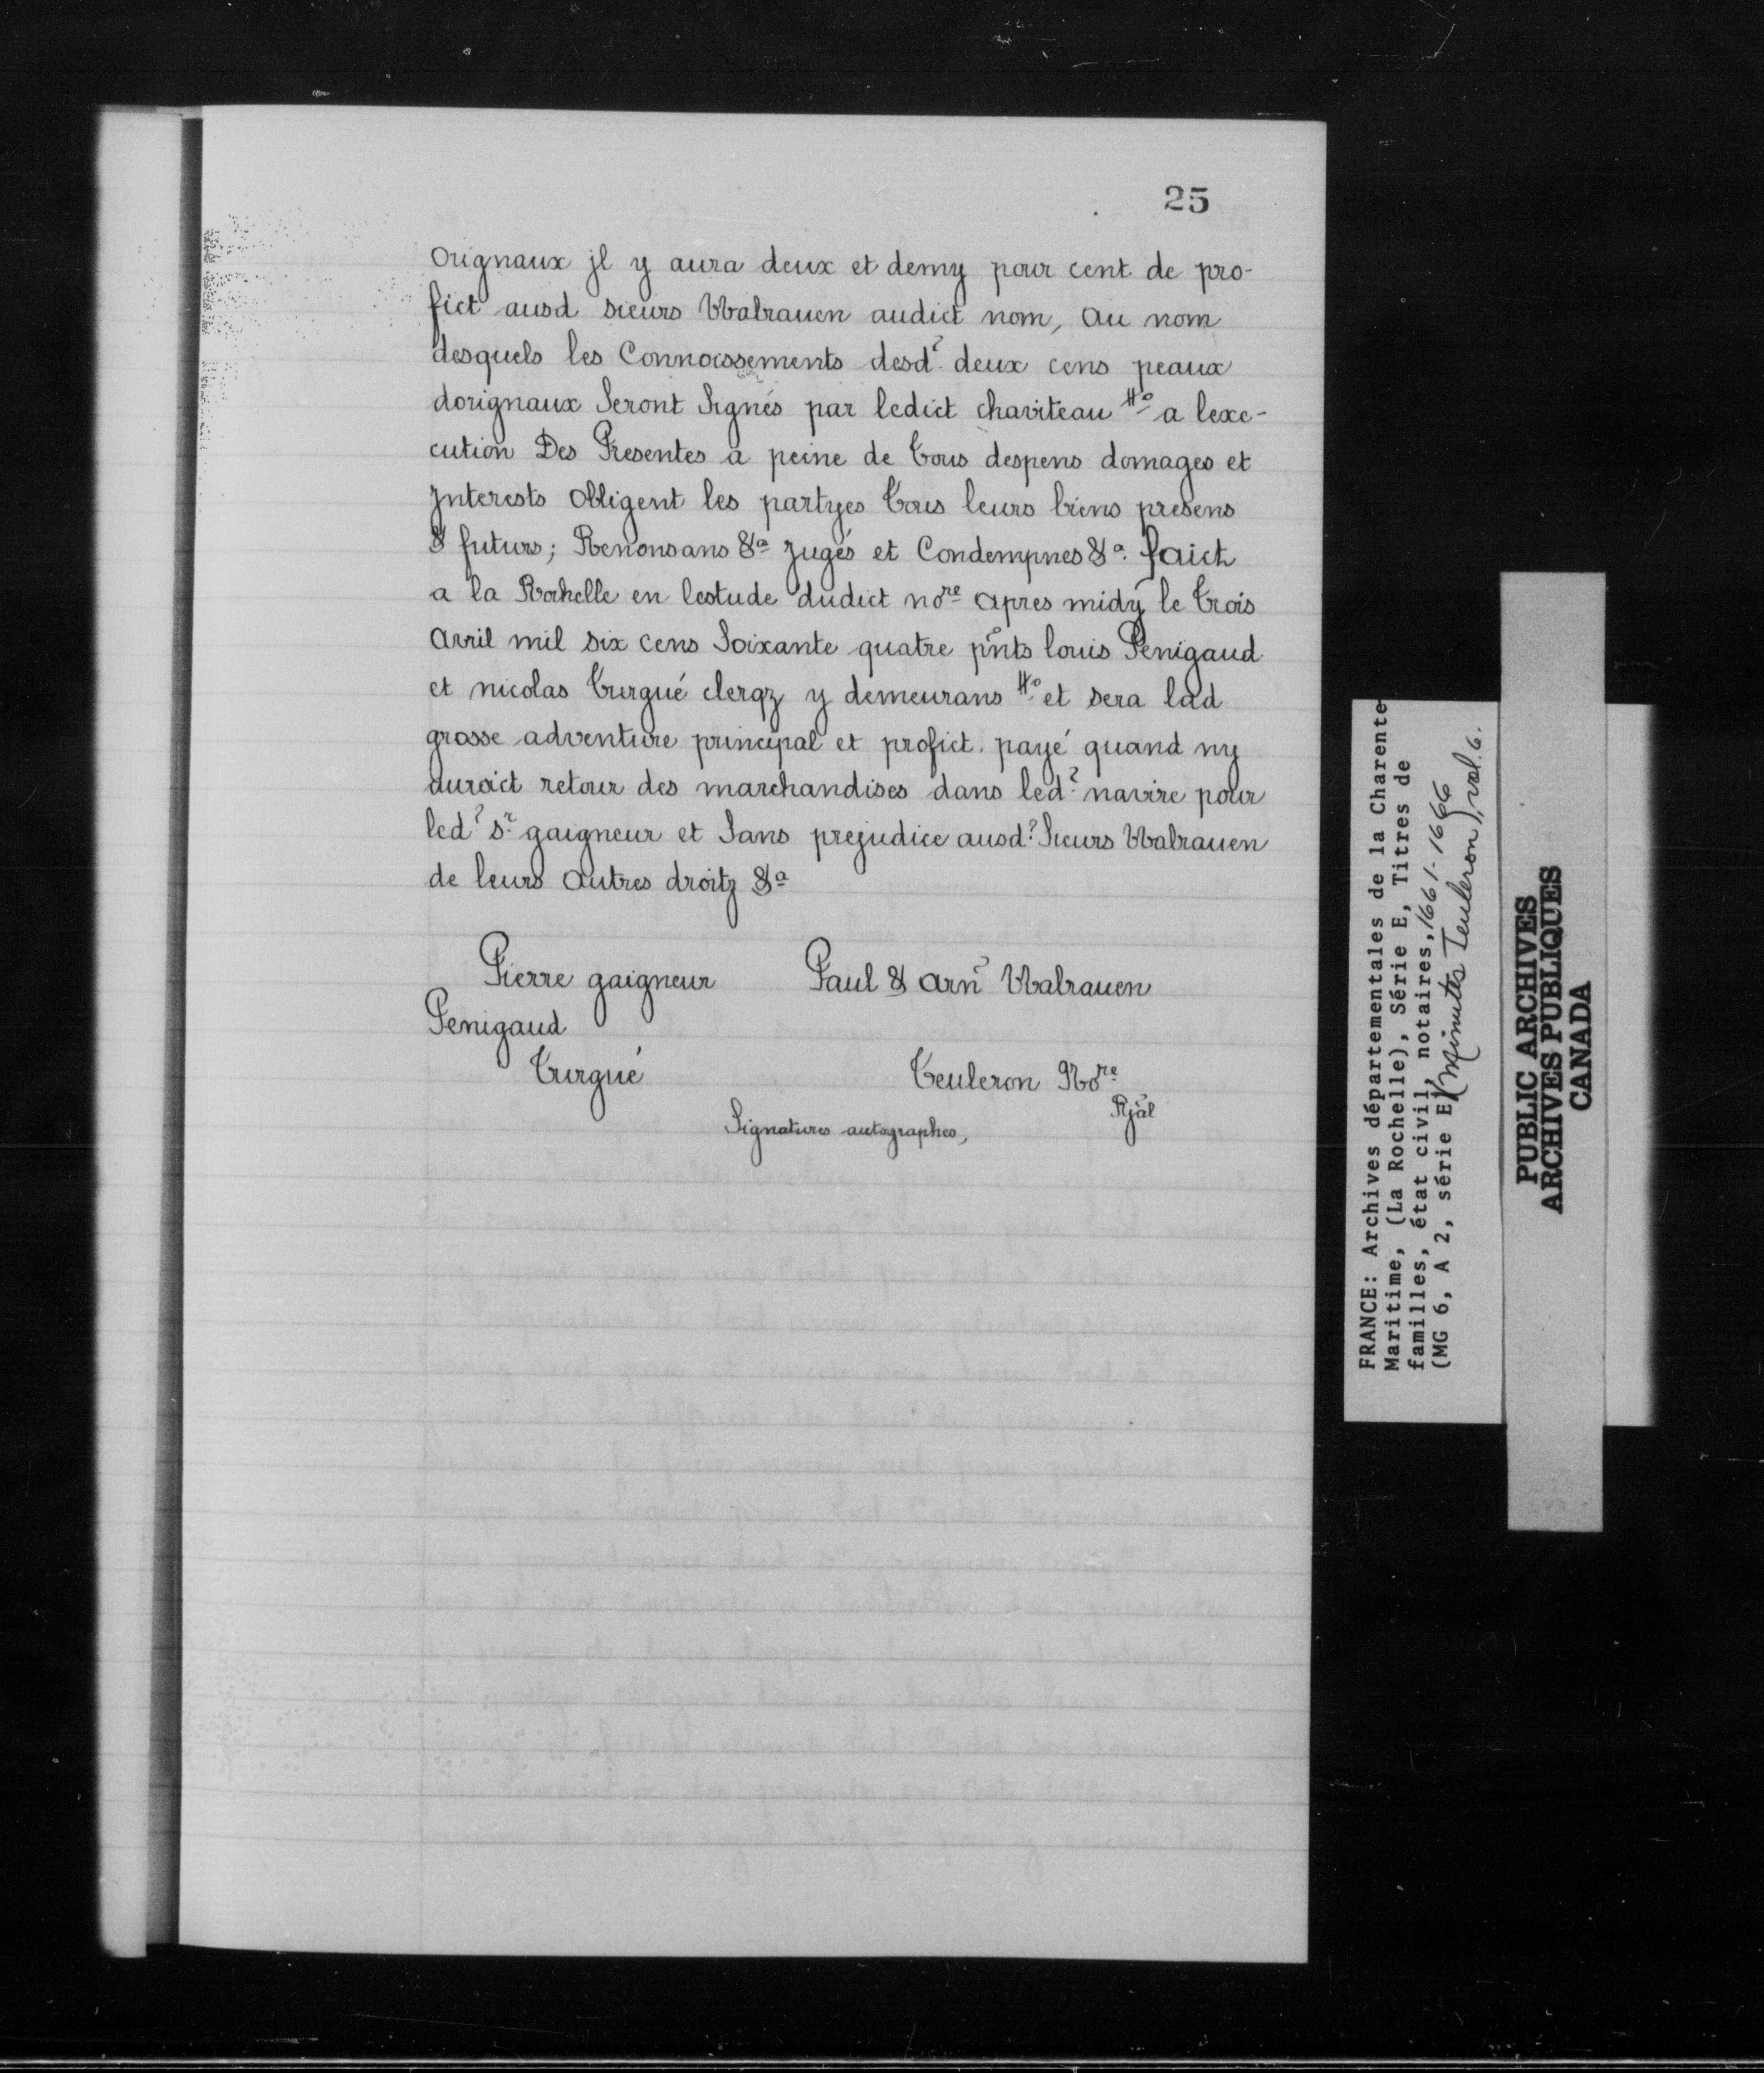 25
orignaux jl y aura deux et demy pour cent de pro-
fict ausd sieurs Walrauen audict nom, au nom
desquels les Connoissements desd? deux cens peaux
dorignaux Seront Signés par ledict chaviteau #o a lexe-
cution Des Presentes a peine de tous despens domages et
jnterests obligent les partyes tous leurs biens presens
& futurs; Renonsans &a jugés et Condempnes &a. faict
a la Rochelle en lestude dudict nore apres midy le trois
avril mil six cens Soixante quatre pnts louis Penigaud
et nicolas turgué clergz y demeurans #o et sera lad
grosse adventure principal et profict. payé quand ny
auroict retour des marchandises dans led? navire pour
led? sr gaigneur et Sans prejudice ausd? Sieurs Walrauen
de leurs autres droitz &a
Pierre gaigneur Paul & arn Walrauen
Penigaud
turgué teuleron Nore
Rjal
Signatures autographes,
FRANCE: Archives départementales de la Charente
Maritime, (La Rochelle), Série E, Titres de
familles, état civil, notaires, 1661-1666
(MG 6, A 2, série E) (Minutes Teuleron), vol. 6.
PUBLIC ARCHIVES
ARCHIVES PUBLIQUES
CANADA